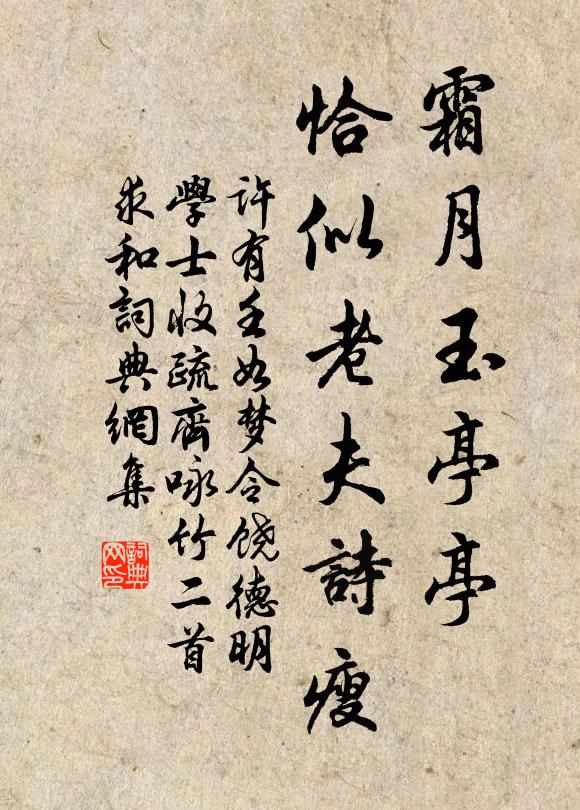 霜月玉亭亭
恰似老夫詩瘦
許有壬如梦令饶德明
學士收疏齋咏竹二首
求和詞典網集
詞典网印